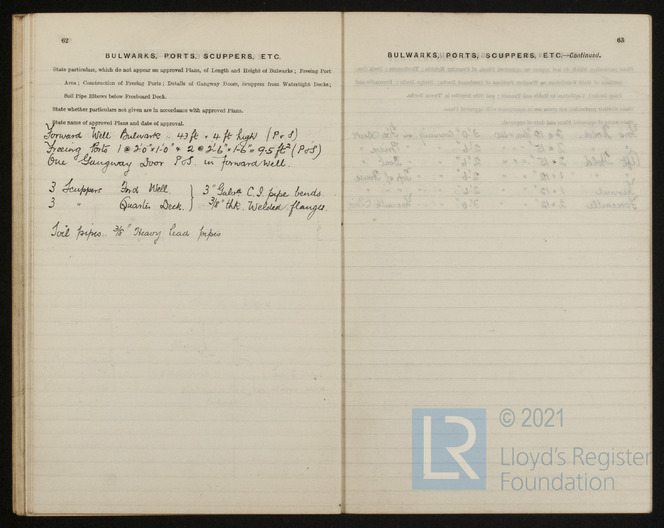 62
BULWARKS, PORTS, SCUPPERS, ETC.
State particulars, which do not appear on approved Plans, of Length and Height of Bulwarks; Freeing Port
Area; Construction of Freeing Ports; Details of Gangway Doors, Scuppers from Watertight Decks;
Soil Pipe Elbows below Freeboard Deck.
State whether particulars not given are in accordance with approved Plans.
State name of approved Plans and date of approval.
Forward Well Bulwark .. 43 ft × 4 ft high (P & S)
Freeing Ports 1 @ 2'0" × 1'0" & 2 @ 2'6" × 1'6" = 9.5 ft² (P & S)
One Gangway Door P & S in forward well.
3 Scuppers Ford Well. } 3" Galvd C.I. pipe bends.
3 " Quarter Deck. } 3/8" thk. Welded flanges.
Soil pipes. 3/8" Heavy lead pipes
63
BULWARKS, PORTS, SCUPPERS, ETC.—Continued.
LR
© 2021
Lloyd's Register
Foundation